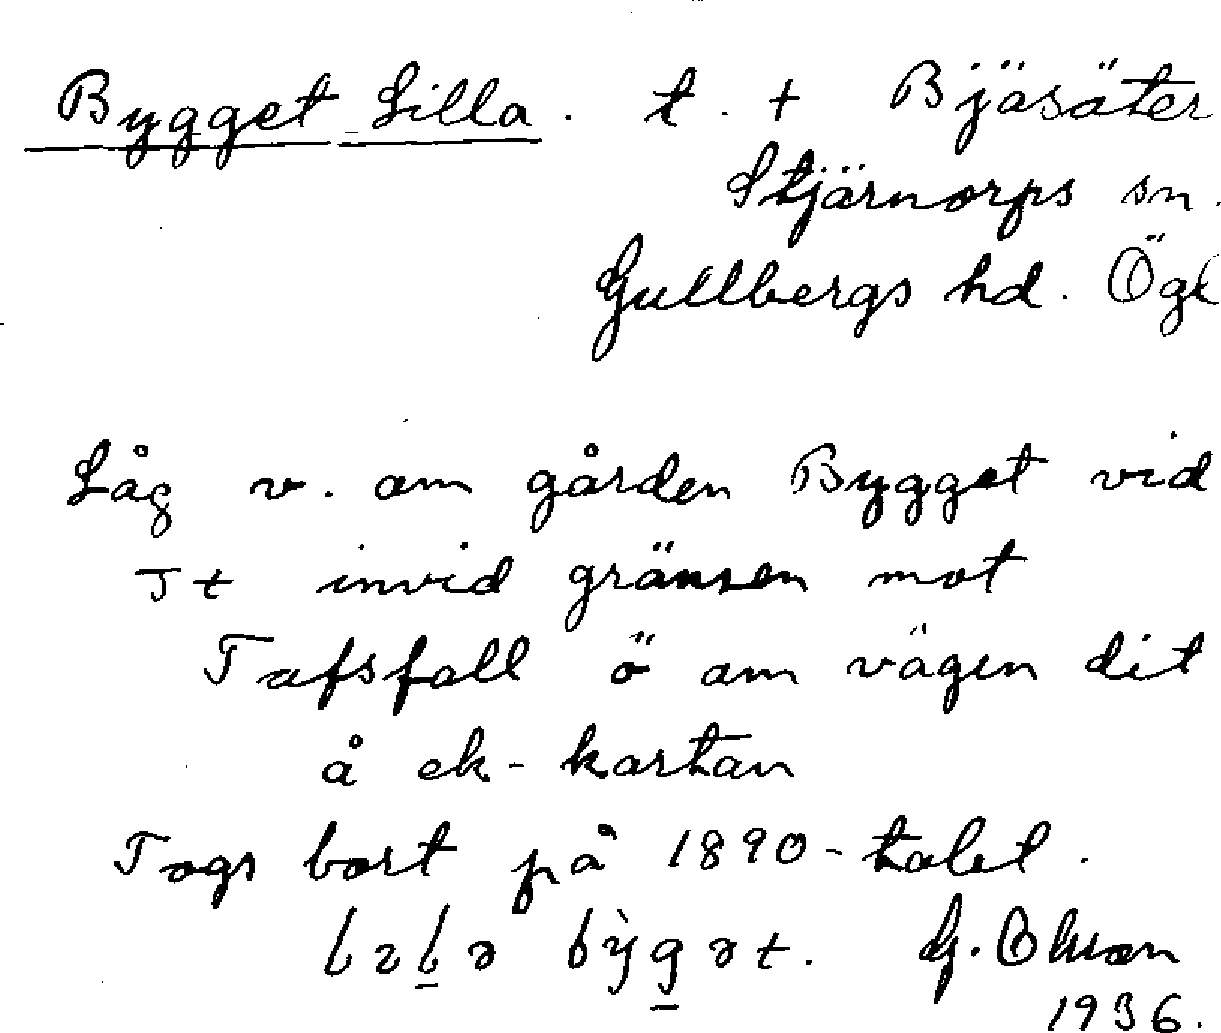 Bygget Lilla. t. + Bjäsäter
Stjärnorps sn.
Gullbergs hd. Ögl
Låg v. om gården Bygget vid
Jt invid gränsen mot
Tafsfall ö om vägen dit
å ek-kartan
Togs bort på 1890-talet.
bỳgət. G. Olsson
1936.